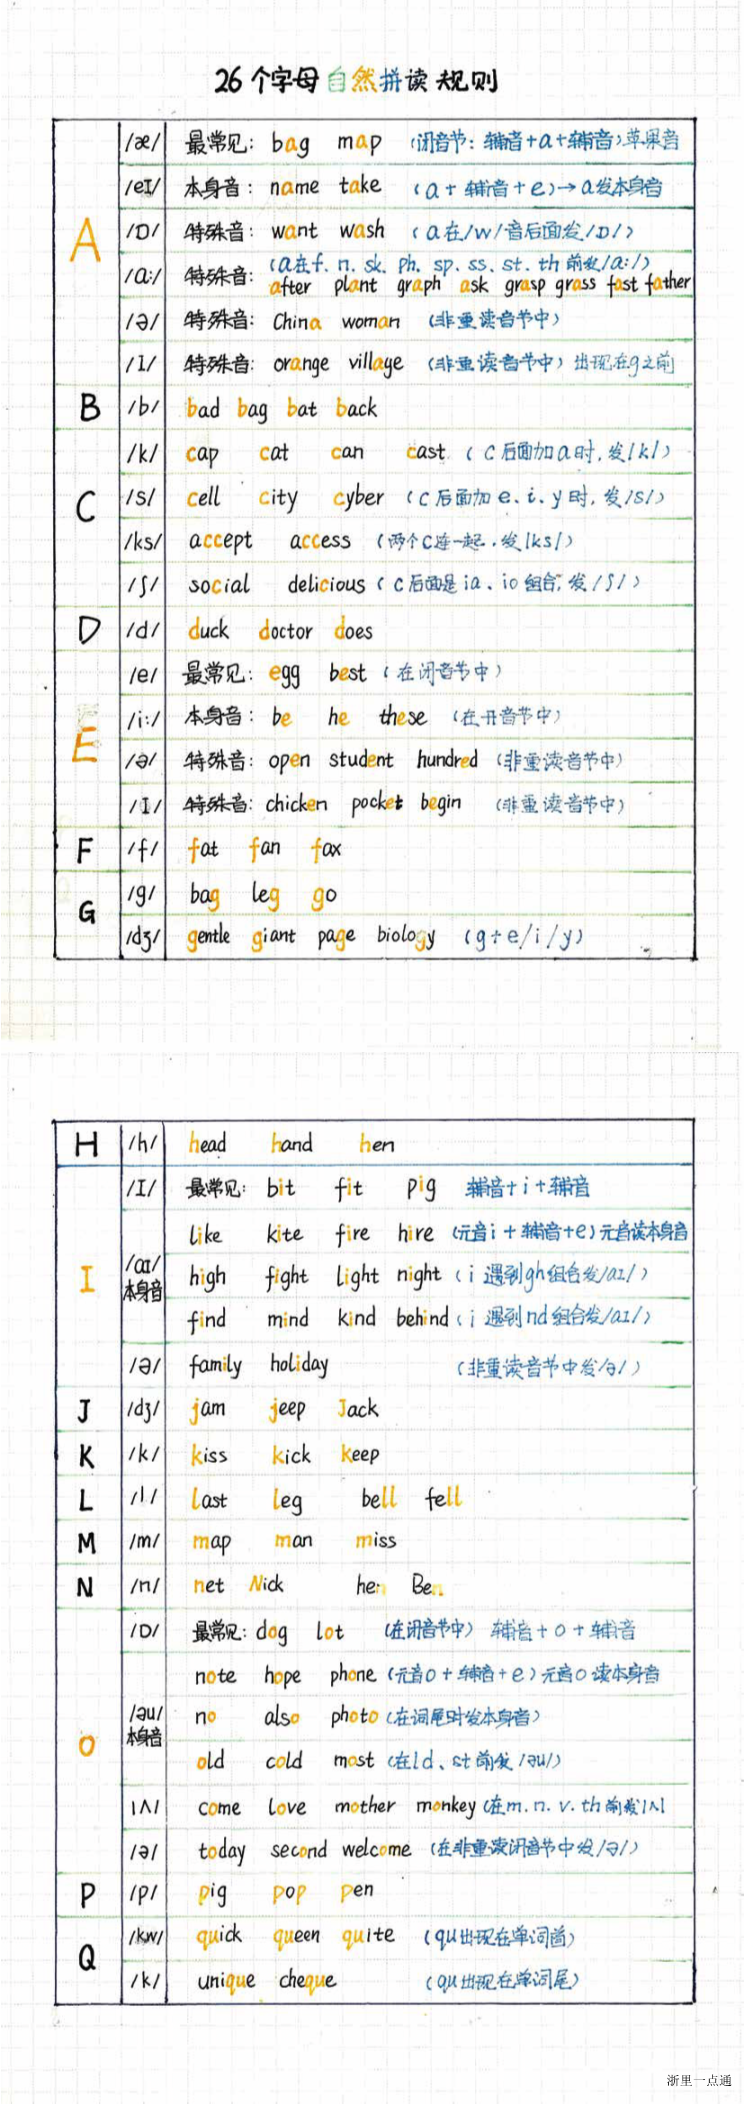 26个字母自然拼读规则
A
/æ/ 最常见: bag map (闭音节: 辅音+a+辅音)苹果音
/eɪ/ 本身音: name take (a+辅音+e)→a发本身音
/ɒ/ 特殊音: want wash (a在/w/音后面发/ɒ/)
/a:/ 特殊音: (a在f. n. sk. ph. sp. ss. st. th前发/a:/)
after plant graph ask grasp grass fast father
/ə/ 特殊音: China woman (非重读音节中)
/ɪ/ 特殊音: orange village (非重读音节中) 出现在g之前
B /b/ bad bag bat back
C
/k/ cap cat can cast (c后面加a时,发/k/)
/s/ cell city cyber (c后面加e、i、y时,发/s/)
/ks/ accept access (两个c连一起,发/ks/)
/ʃ/ social delicious (c后面是ia、io组合,发/ʃ/)
D /d/ duck doctor does
E
/e/ 最常见: egg best (在闭音节中)
/i:/ 本身音: be he these (在开音节中)
/ə/ 特殊音: open student hundred (非重读音节中)
/ɪ/ 特殊音: chicken pocket begin (非重读音节中)
F /f/ fat fan fax
G
/g/ bag leg go
/dʒ/ gentle giant page biology (g+e/i/y)
H /h/ head hand hen
I
/ɪ/ 最常见: bit fit pig 辅音+i+辅音
/aɪ/ 本身音
like kite fire hire (元音i+辅音+e)元音读本身音
high fight light night (i遇到gh组合发/aɪ/)
find mind kind behind (i遇到nd组合发/aɪ/)
/ə/ family holiday (非重读音节中发/ə/)
J /dʒ/ jam jeep Jack
K /k/ kiss kick keep
L /l/ last leg bell fell
M /m/ map man miss
N /n/ net Nick hen Ben
O
/ɒ/ 最常见: dog lot (在闭音节中) 辅音+o+辅音
/əu/ 本身音
note hope phone (元音o+辅音+e)元音o读本身音
no also photo (在词尾时发本身音)
old cold most (在ld、st前发/əu/)
/ʌ/ come love mother monkey (在m. n. v. th前发/ʌ/
/ə/ today second welcome (在非重读闭音节中发/ə/)
P /p/ pig pop pen
Q
/kw/ quick queen quite (qu出现在单词首)
/k/ unique cheque (qu出现在单词尾)
浙里一点通